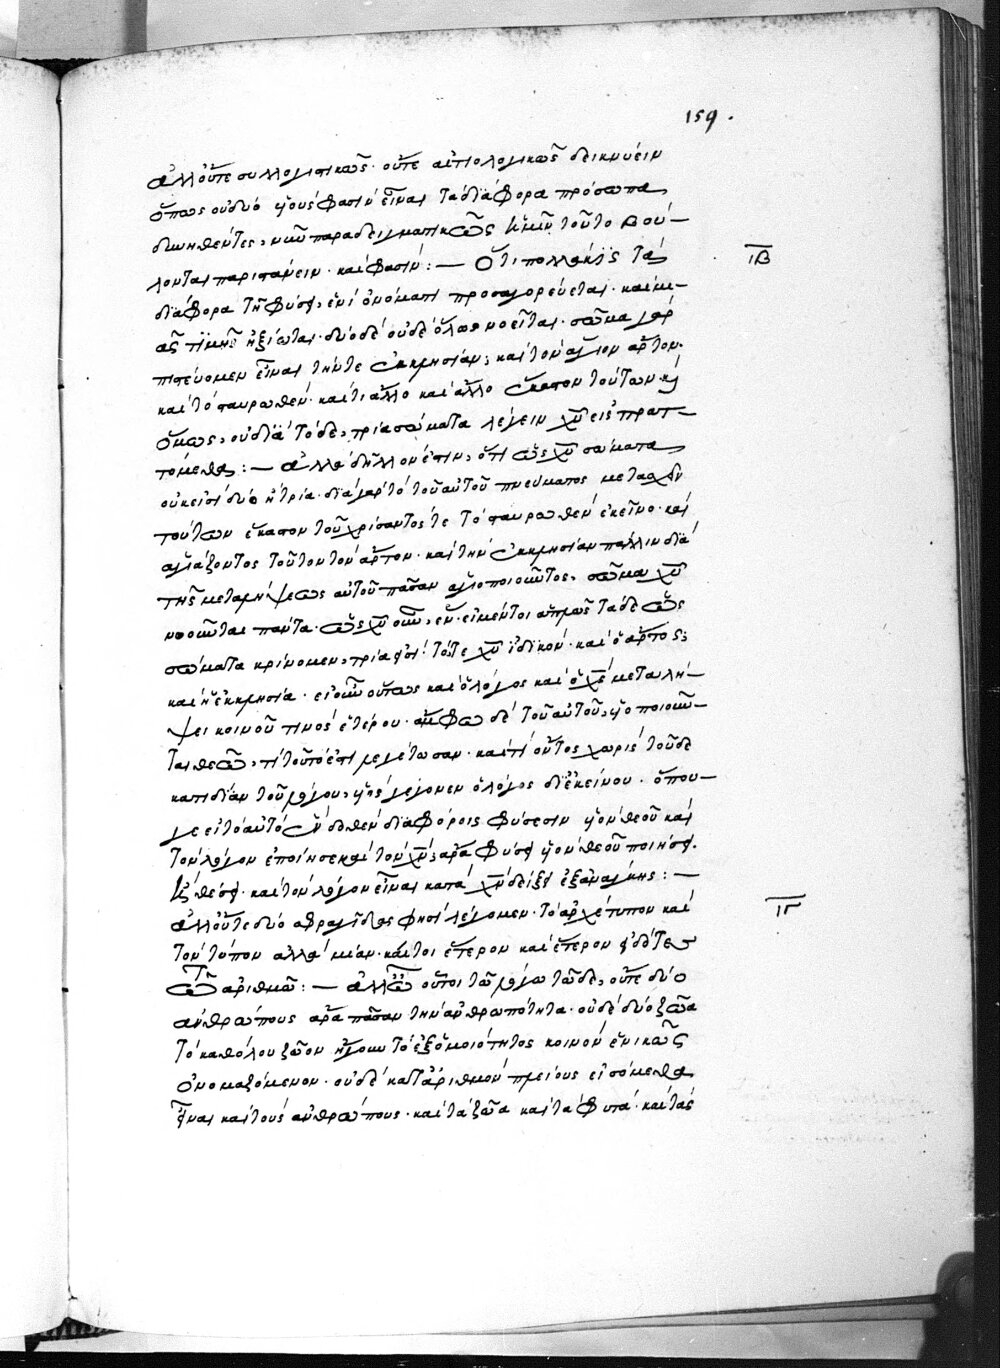 159.
ἀλλ' οὔτε συλλογιστικῶς· οὔτε αἰτιολογικῶς δεικνύειν
ὅπως οὐ δύο υἱοὺς φασὶν εἶναι τὰ διάφορα πρόσωπα
διωχθέντες, νῦν παραδειγματικῶς ἡμῖν τοῦτο βού–
λονται παριστάνειν· καὶ φασίν: — Ὅτι πολλάκις τὰ
ΙΒ
διάφορα τῇ φύσει, ἑνὶ ὀνόματι προσαγορεύεται· καὶ μι–
ᾶς τιμῆς ἠξίωται· δύο δὲ οὐδὲ ὅλως νοεῖται· σῶμα γὰρ
πιστεύομεν εἶναι τήν τε ἐκκλησίαν, καὶ τὸν ἅγιον ἄρτον·
καὶ τὸ σταυρωθέν· καίτι ἄλλο καὶ ἄλλο ἕκαστον τούτων κὶ
ὅμως, οὐ διὰ τόδε, τρία σώματα λέγειν χῦ εἰσπρατ–
τόμεθα: — ἀλλὰ δῆλον ἐστιν, ὅτι ὡς χῦ σώματα
οὐκ εἰσὶ δύο ἢ τρία· διὰ γὰρ τὸ τοῦ αὐτοῦ πνεύματος μετασχεῖν
τούτων ἕκαστον τοῦ χρίσαντός τε τὸ σταυρωθὲν ἐκεῖνο· καὶ
ἁγιάζοντος τοῦτον τὸν ἄρτον· καὶ τὴν ἐκκλησίαν πάλιν διὰ
τῆς μεταλήψεως αὐτοῦ πᾶσαν ἁγιοποιοῦντος, σῶμα χῦ
νοοῦνται πάντα· ὡς χῦ οὖν, ἕν· εἰ μέντοι ἁπλῶς τάδε ὡς
σώματα κρίνομεν, τρία φησί· τό τε χῦ ἰδικόν· καὶ ὁ ἄρτος;
καὶ ἡ ἐκκλησία· εἰ οὖν οὕτως καὶ ὁ λόγος καὶ ὁ χς μεταλή–
ψει κοινοῦ τινὸς ἑτέρου· ἄμφω δὲ τοῦ αὐτοῦ, υἱοποιοῦν–
ται θεῶ, τί τοῦτό ἐστι λεγέτωσαν· καὶ τί οὗτος χωρὶς τοῦδε
κατιδίαν τοῦ λόγου, υἱὸς γέγονεν ὁ λόγος δι' ἐκείνου· ὅπου–
γε εἰ τὸ αὐτὸ ἓν δοθὲν διαφόροις φύσεσιν υἱὸν θεοῦ καὶ
τὸν λόγον ἐποίησε καὶ τὸν χν; ἄρα φύσει υἱὸν θεοῦ ποιήσει·
ἢ θέσει· καὶ τὸν λόγον εἶναι κατὰ χν δείξει ἐξανάγκης: —
ἀλλ' οὔτε δύο σφραγῖδας φησὶ λέγομεν· τὸ ἀρχέτυπον καὶ
ΙΓ
τὸν τύπον ἀλλὰ μίαν· καίτοι ἕτερον καὶ ἕτερον
τῷ ἀριθμῷ: — ἀλλ' ὦ οὗτοι τῷ λόγω τῷδε, οὔτε δύο
ἀνθρώπους ἄρα πᾶσαν τὴν ἀνθρωπότητα· οὐδὲ δύο ζῶα
τὸ καθόλου ζῶον ἤγουν τὸ ἐξ ὁμοιότητος κοινὸν ἑνικῶς
ὀνομαζόμενον· οὐδὲ κατ' ἀριθμὸν πλείους εἰσόμεθα
εἶναι καὶ τοὺς ἀνθρώπους· καὶ τὰ ζῶα καὶ τὰ φυτά· καὶ τὰς